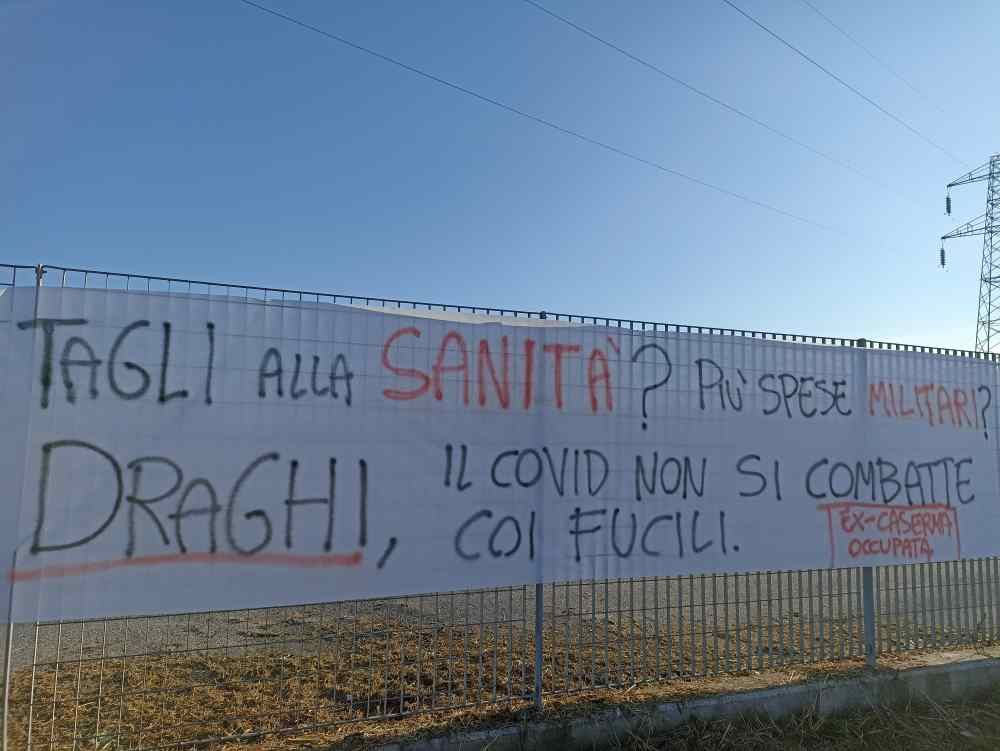 TAGLI ALLA SANITÀ? PIÙ SPESE MILITARI?
DRAGHI, IL COVID NON SI COMBATTE
COI FUCILI.
EX-CASERMA
OCCUPATA